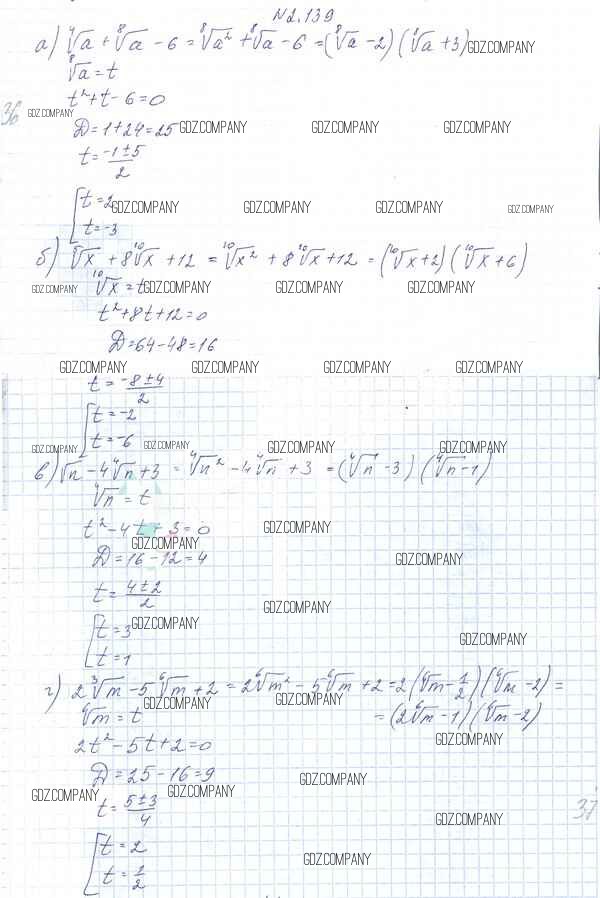 №2.139
а) ⁴√a + ⁸√a - 6 = ⁸√a² + ⁸√a - 6 = (⁸√a - 2)(⁸√a + 3) GDZ.COMPANY
⁸√a = t
t² + t - 6 = 0
36 GDZ.COMPANY
D = 1 + 24 = 25 GDZ.COMPANY GDZ.COMPANY GDZ.COMPANY
t = (-1 ± 5)/2
[ t = 2 GDZ.COMPANY GDZ.COMPANY GDZ.COMPANY GDZ.COMPANY
t = -3
б) ⁵√x + 8 ¹⁰√x + 12 = ¹⁰√x² + 8 ¹⁰√x + 12 = (¹⁰√x + 2)(¹⁰√x + 6)
GDZ.COMPANY ¹⁰√x = t GDZ.COMPANY GDZ.COMPANY GDZ.COMPANY
t² + 8t + 12 = 0
D = 64 - 48 = 16
GDZ.COMPANY GDZ.COMPANY GDZ.COMPANY GDZ.COMPANY
t = (-8 ± 4)/2
[ t = -2
t = -6
GDZ.COMPANY GDZ.COMPANY GDZ.COMPANY GDZ.COMPANY
в) √n - 4 ⁴√n + 3 = ⁴√n² - 4 ⁴√n + 3 = (⁴√n - 3)(⁴√n - 1)
⁴√n = t
t² - 4t + 3 = 0 GDZ.COMPANY
GDZ.COMPANY
D = 16 - 12 = 4 GDZ.COMPANY
t = (4 ± 2)/2 GDZ.COMPANY
[ t = 3 GDZ.COMPANY
GDZ.COMPANY
t = 1
г) 2 ³√m - 5 ⁶√m + 2 = 2 ⁶√m² - 5 ⁶√m + 2 = 2(⁶√m - 1/2)(⁶√m - 2) =
GDZ.COMPANY GDZ.COMPANY
⁶√m = t = (2 ⁶√m - 1)(⁶√m - 2)
2t² - 5t + 2 = 0 GDZ.COMPANY
D = 25 - 16 = 9 GDZ.COMPANY
GDZ.COMPANY GDZ.COMPANY
t = (5 ± 3)/4 GDZ.COMPANY 37
[ t = 2 GDZ.COMPANY
t = 1/2